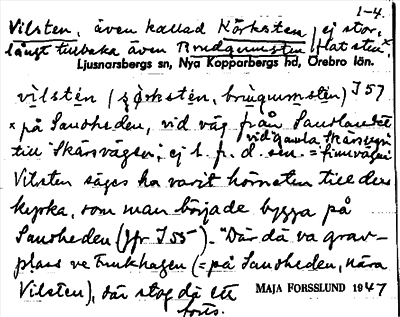 1-4.
Vilsten, även kallad Körksten, ej stor,
långt tillbaka även Brudgumsten, flat sten,x
Ljusnarsbergs sn, Nya Kopparbergs hd, Örebro län.
vilstén (körkstén, brúgumstén) I 57
x på Sandheden, vid väg från Sandlandet
vid gamla Skärsvägen
till Skärsvägen; ej l. p. d. sen. = finnvägen
Vilsten säges ha varit hörnsten till den
kyrka, som man började bygga på
Sandheden (jfr I 55). "Där då va grav-
plass ve Funkhagen (= på Sandheden, nära
Vilsten), där stog då ett
forts.
MAJA FORSSLUND 1947